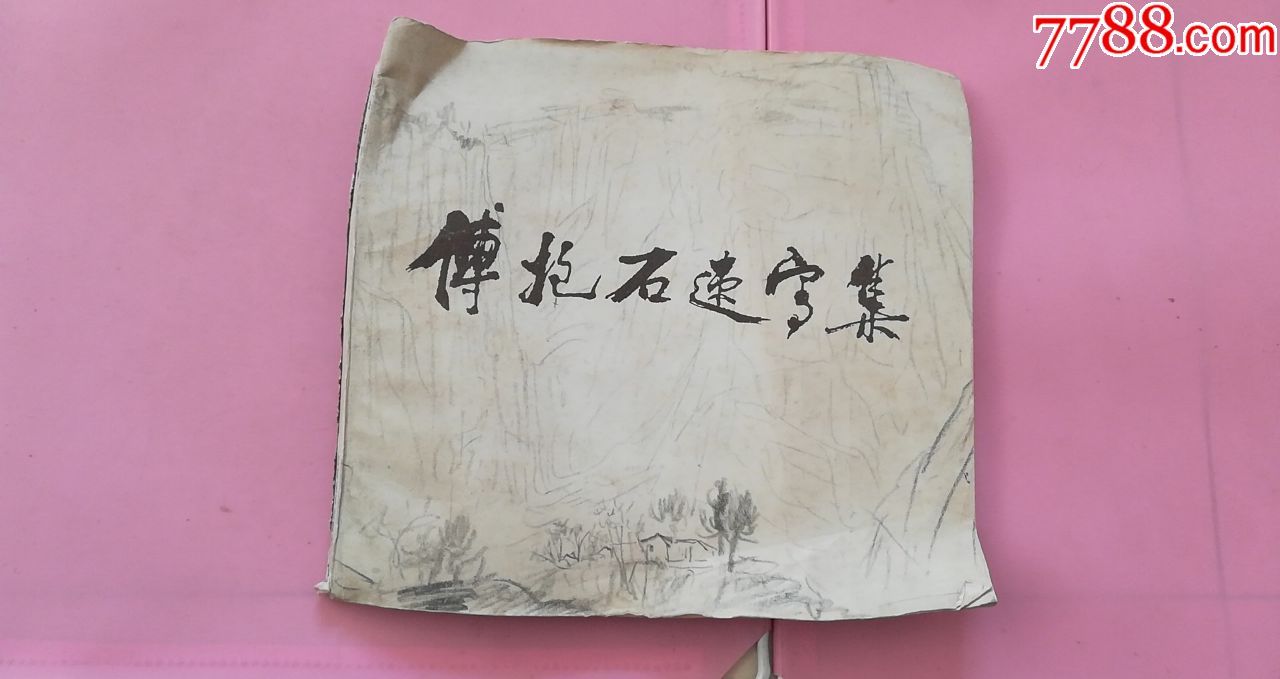 7788.com
傅抱石速写集